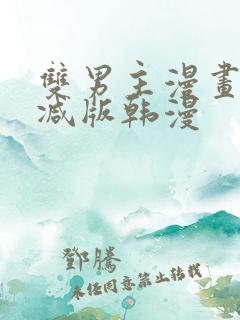 雙男主漫畫
减版韩漫
鄧騰
未经同意禁止转载